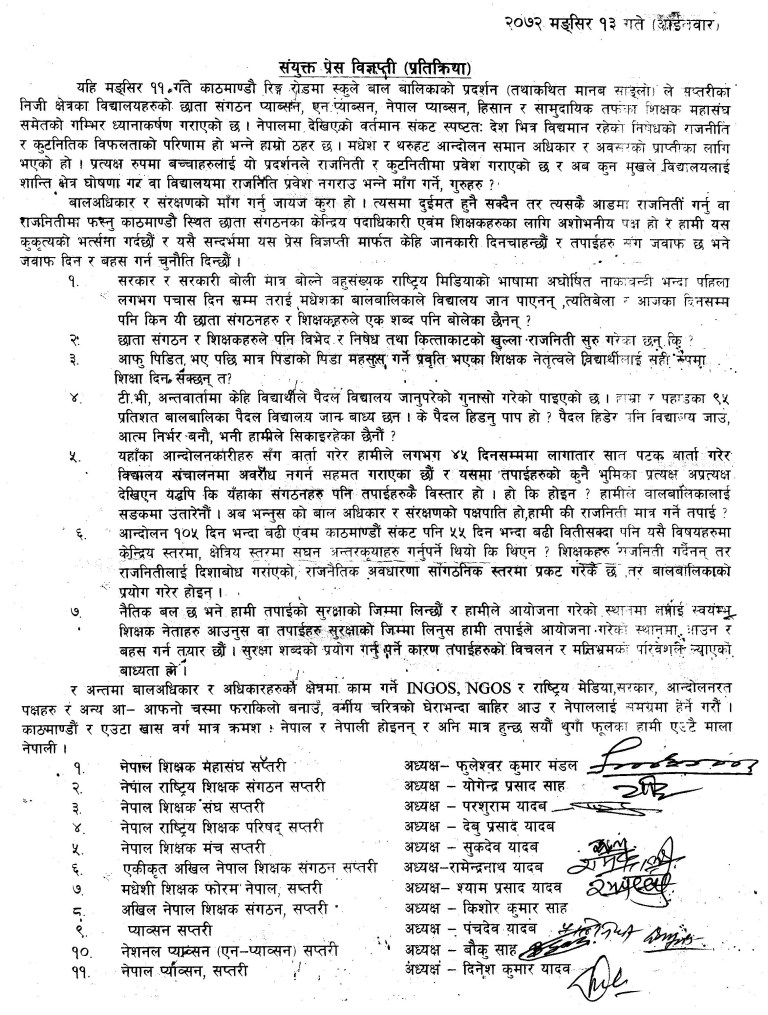 २०७२ मङ्सिर १३ गते (आईतवार)
संयुक्त प्रेस विज्ञप्ती (प्रतिक्रिया)
यहि मङ्सिर ११ गते काठमाण्डौ रिङ्ग रोडमा स्कुले बाल बालिकाको प्रदर्शन (तथाकथित मानब साङ्लो) ले सप्तरीको
निजी क्षेत्रका विद्यालयहरुको छाता संगठन प्याब्सन, एन.प्याब्सन, नेपाल प्याब्सन, हिसान र सामुदायिक तर्फका शिक्षक महासंघ
समेतको गम्भिर ध्यानाकर्षण गराएको छ । नेपालमा देखिएको वर्तमान संकट स्पष्टतः देश भित्र विद्यमान रहेको निषेधको राजनीति
र कुटनितिक विफलताको परिणाम हो भन्ने हाम्रो ठहर छ । मधेश र थरुहट आन्दोलन समान अधिकार र अवसरको प्राप्तीका लागि
भएको हो । प्रत्यक्ष रुपमा बच्चाहरुलाई यो प्रदर्शनले राजनिती र कुटनितीमा प्रवेश गराएको छ र अब कुन मुखले विद्यालयलाई
शान्ति क्षेत्र घोषणा गर वा विद्यालयमा राजनिति प्रवेश नगराउ भन्ने माँग गर्ने, गुरुहरु ?
बालअधिकार र संरक्षणको माँग गर्नु जायज कुरा हो । त्यसमा दुईमत हुनै सक्दैन तर त्यसकै आडमा राजनितीं गर्नु वा
राजनितीमा फस्नु काठमाण्डौ स्थित छाता संगठनका केन्द्रिय पदाधिकारी एवंम शिक्षकहरुका लागि अशोभनीय पक्ष हो र हामी यस
कुकृत्यको भर्त्सना गर्दछौं र यसै सन्दर्भमा यस प्रेस विज्ञप्ती मार्फत केहि जानकारी दिनचाहन्छौं र तपाईहरु संग जवाफ छ भने
जवाफ दिन र बहस गर्न चुनौति दिन्छौं ।
१. सरकार र सरकारी बोली मात्र बोल्ने बहुसंख्यक राष्ट्रिय मिडियाको भाषामा अघोषित नाकावन्दी भन्दा पहिला
लगभग पचास दिन सम्म तराई मधेशका बालबालिकाले विद्यालय जान पाएनन् ,त्यतिबेला र आजका दिनसम्म
पनि किन यी छाता संगठनहरु र शिक्षकहरुले एक शब्द पनि बोलेका छैनन् ?
२. छाता संगठन र शिक्षकहरुले पनि विभेद र निषेध तथा कित्ताकाटको खुल्ला राजनिती सुरु गरेका छन् कि ?
३. आफु पिडित भए पछि मात्र पिडाको पिडा महसुस गर्ने प्रवृति भएका शिक्षक नेतृत्वले विद्यार्थीलाई सही रुपमा
शिक्षा दिन सक्छन् त?
४. टी.भी, अन्तवार्तामा केहि विद्यार्थीले पैदल विद्यालय जानुपरेको गुनासो गरेको पाइएको छ । हाम्रा र पहाडका ९५
प्रतिशत बालबालिका पैदल विद्यालय जान बाध्य छन् । के पैदल हिडनु पाप हो ? पैदल हिडेर पनि विद्यालय जाउं,
आत्म निर्भर बनौ, भनी हामीले सिकाइरहेका छैनौं ?
५. यहाँका आन्दोलनकारीहरु सँग वार्ता गरेर हामीले लगभग ४५ दिनसम्ममा लागातार सात पटक वार्ता गरेर
विद्यालय संचालनमा अवरोध नगर्न सहमत गराएका छौं र यसमा तपाईहरुको कुनै भुमिका प्रत्यक्ष अप्रत्यक्ष
देखिएन यद्धपि कि यँहाका संगठनहरु पनि तपाईहरुकै विस्तार हो । हो कि होइन ? हामीले बालबालिकालाई
सडकमा उतारेनौं । अब भन्नुस को बाल अधिकार र संरक्षणको पक्षपाति हो,हामी की राजनिती मात्र गर्ने तपाई ?
६. आन्दोलन १०५ दिन भन्दा बढी एंवम काठमाण्डौं संकट पनि ५५ दिन भन्दा बढी वितीसक्दा पनि यसै विषयहरुमा
केन्द्रिय स्तरमा, क्षेत्रिय स्तरमा सघन अन्तरकृयाहरु गर्नुपर्ने थियो कि थिएन ? शिक्षकहरु राजनिती गर्दैनन् तर
राजनितीलाई दिशाबोध गराएको, राजनैतिक अवधारणा सांगठनिक स्तरमा प्रकट गरेकै छ तर बालबालिकाको
प्रयोग गरेर होइन् ।
७. नैतिक बल छ भने हामी तपाईको सुरक्षाको जिम्मा लिन्छौं र हामीले आयोजना गरेको स्थानमा स्वयंम्भू
शिक्षक नेताहरु आउनुस वा तपाईहरु सुरक्षाको जिम्मा लिनुस हामी तपाईले आयोजना गरेको स्थानमा आउन र
बहस गर्न तयार छौं । सुरक्षा शब्दको प्रयोग गर्नु पर्ने कारण तपाईहरुको विचलन र मतिभ्रमको परिवेशले ल्याएको
बाध्यता हो ।
र अन्तमा बालअधिकार र अधिकारहरुको क्षेत्रमा काम गर्ने INGOS, NGOS र राष्ट्रिय मेडिया,सरकार, आन्दोलनरत
पक्षहरु र अन्य आ– आफनो चस्मा फराकिलो बनाउं, वर्गीय चरित्रको घेराभन्दा बाहिर आउ र नेपाललाई समग्रमा हेर्ने गरौं ।
काठमाण्डौं र एउटा खास वर्ग मात्र क्रमश : नेपाल र नेपाली होइनन् र अनि मात्र हुन्छ सयौं थुगाँ फूलका हामी एउटै माला
नेपाली ।
१. नेपाल शिक्षक महासंघ सप्तरी अध्यक्ष– फुलेश्वर कुमार मंडल
२. नेपाल राष्ट्रिय शिक्षक संगठन सप्तरी अध्यक्ष – योगेन्द्र प्रसाद साह
३. नेपाल शिक्षक संघ सप्तरी अध्यक्ष – परशुराम यादब
४. नेपाल राष्ट्रिय शिक्षक परिषद् सप्तरी अध्यक्ष – देबु प्रसाद यादब
५. नेपाल शिक्षक मंच सप्तरी अध्यक्ष – सुकदेव यादब
६. एकीकृत अखिल नेपाल शिक्षक संगठन सप्तरी अध्यक्ष–रामेन्द्रनाथ यादब
७. मधेशी शिक्षक फोरम नेपाल, सप्तरी अध्यक्ष– श्याम प्रसाद यादव
८. अखिल नेपाल शिक्षक संगठन, सप्तरी अध्यक्ष – किशोर कुमार साह
९. प्याव्सन सप्तरी अध्यक्ष – पंचदेव यादब
१०. नेशनल प्याव्सन (एन-प्याव्सन) सप्तरी अध्यक्ष – बौकु साह
११. नेपाल प्याव्सन, सप्तरी अध्यक्ष – दिनेश कुमार यादब